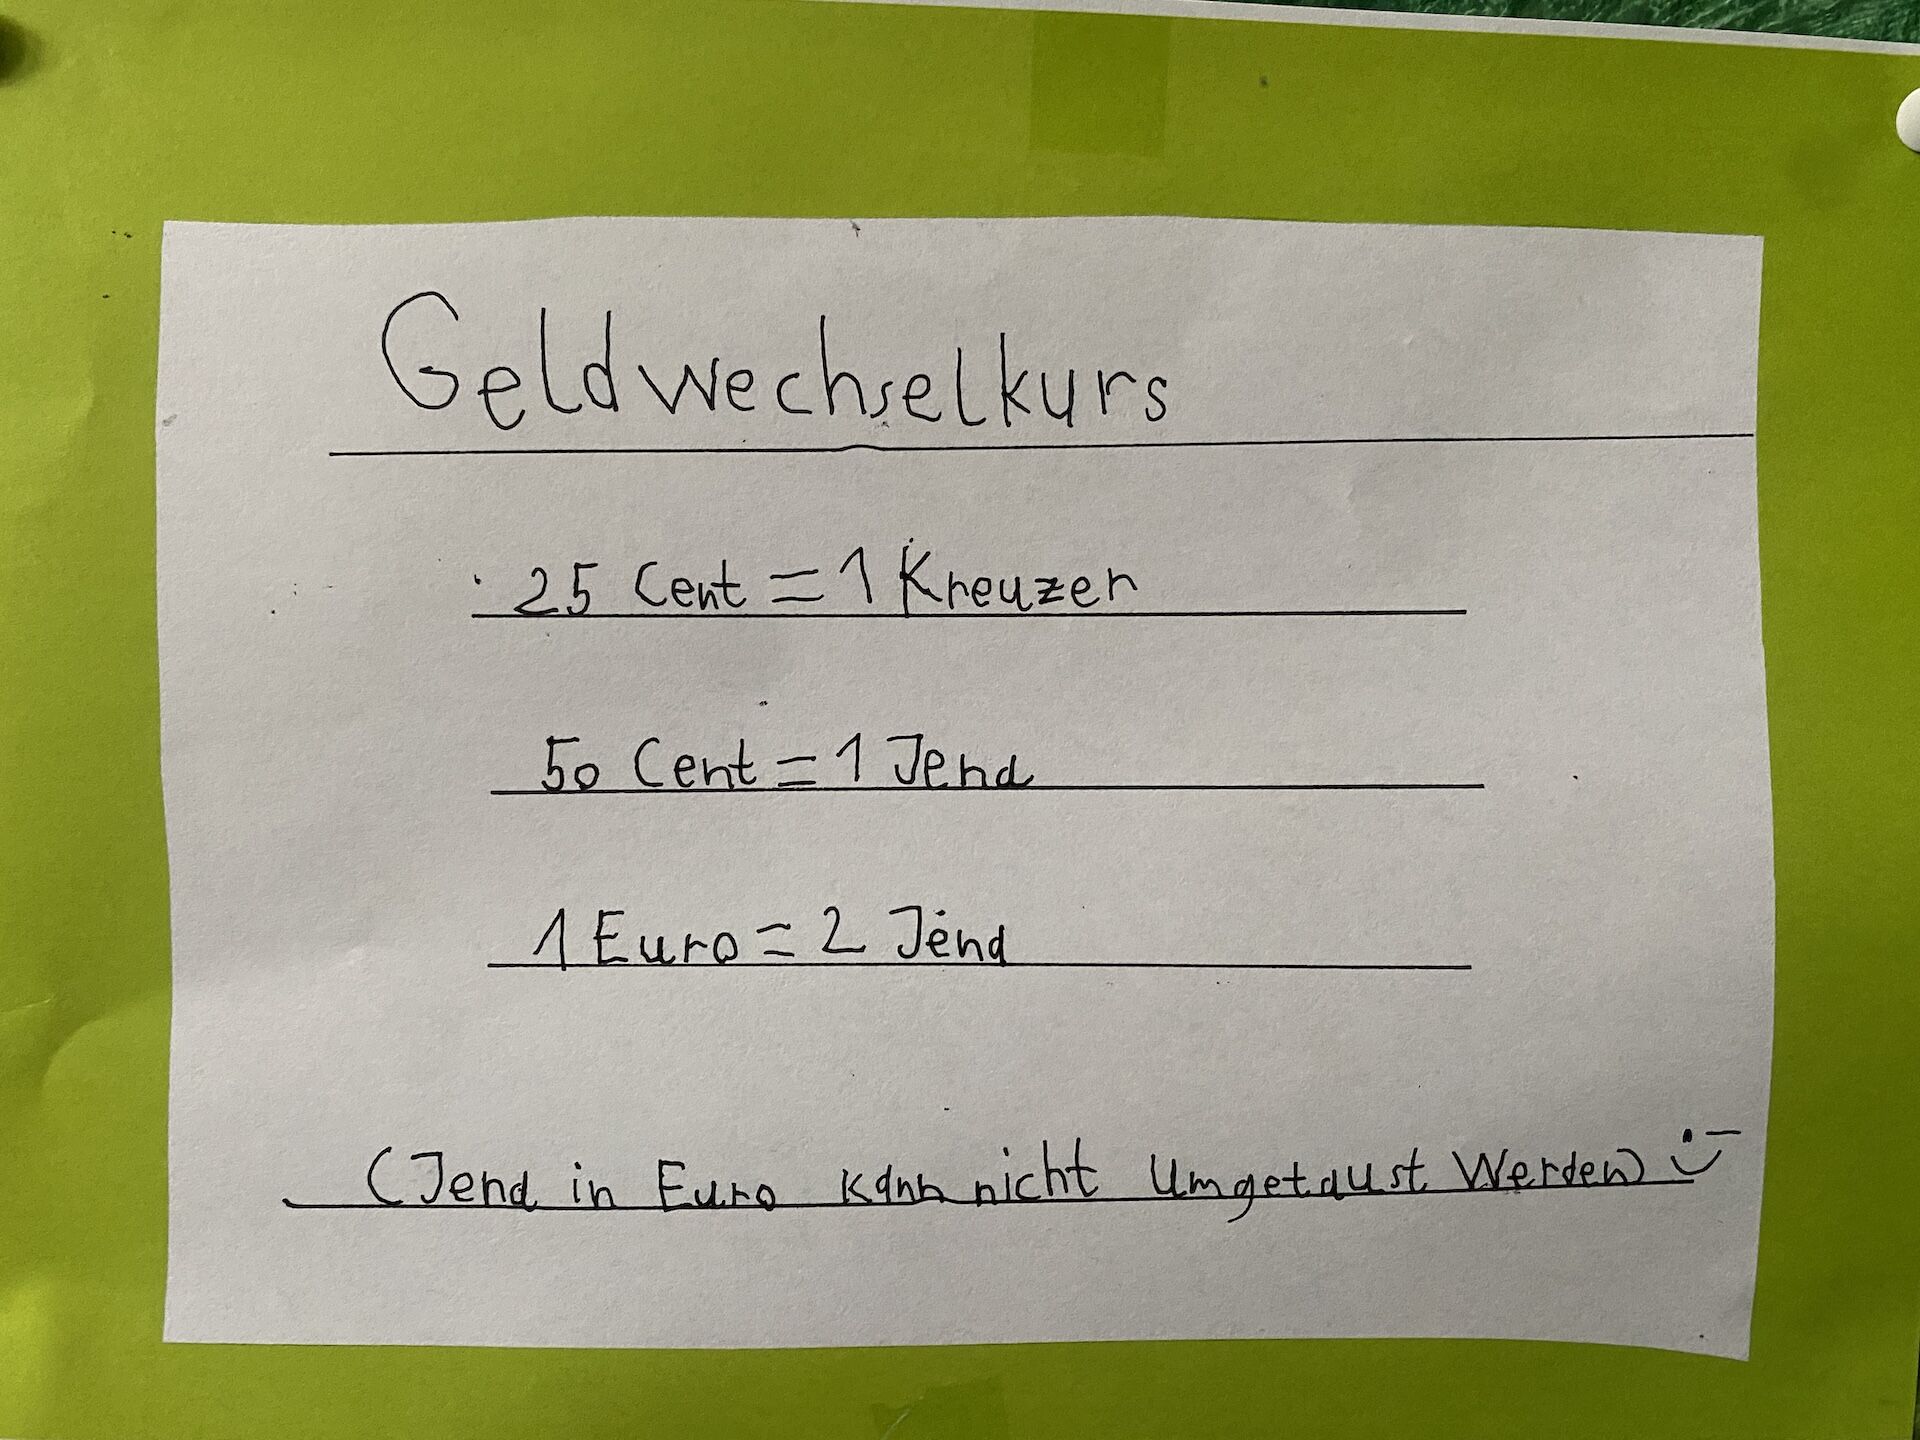 Geldwechselkurs
25 Cent = 1 Kreuzer
50 Cent = 1 Jend
1 Euro = 2 Jend
(Jend in Euro kann nicht Umgetaust Werden)